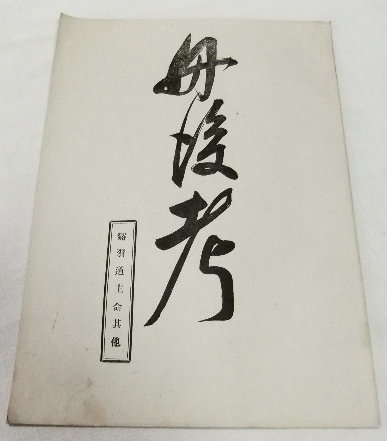 丹後考
谿羽道主命其他